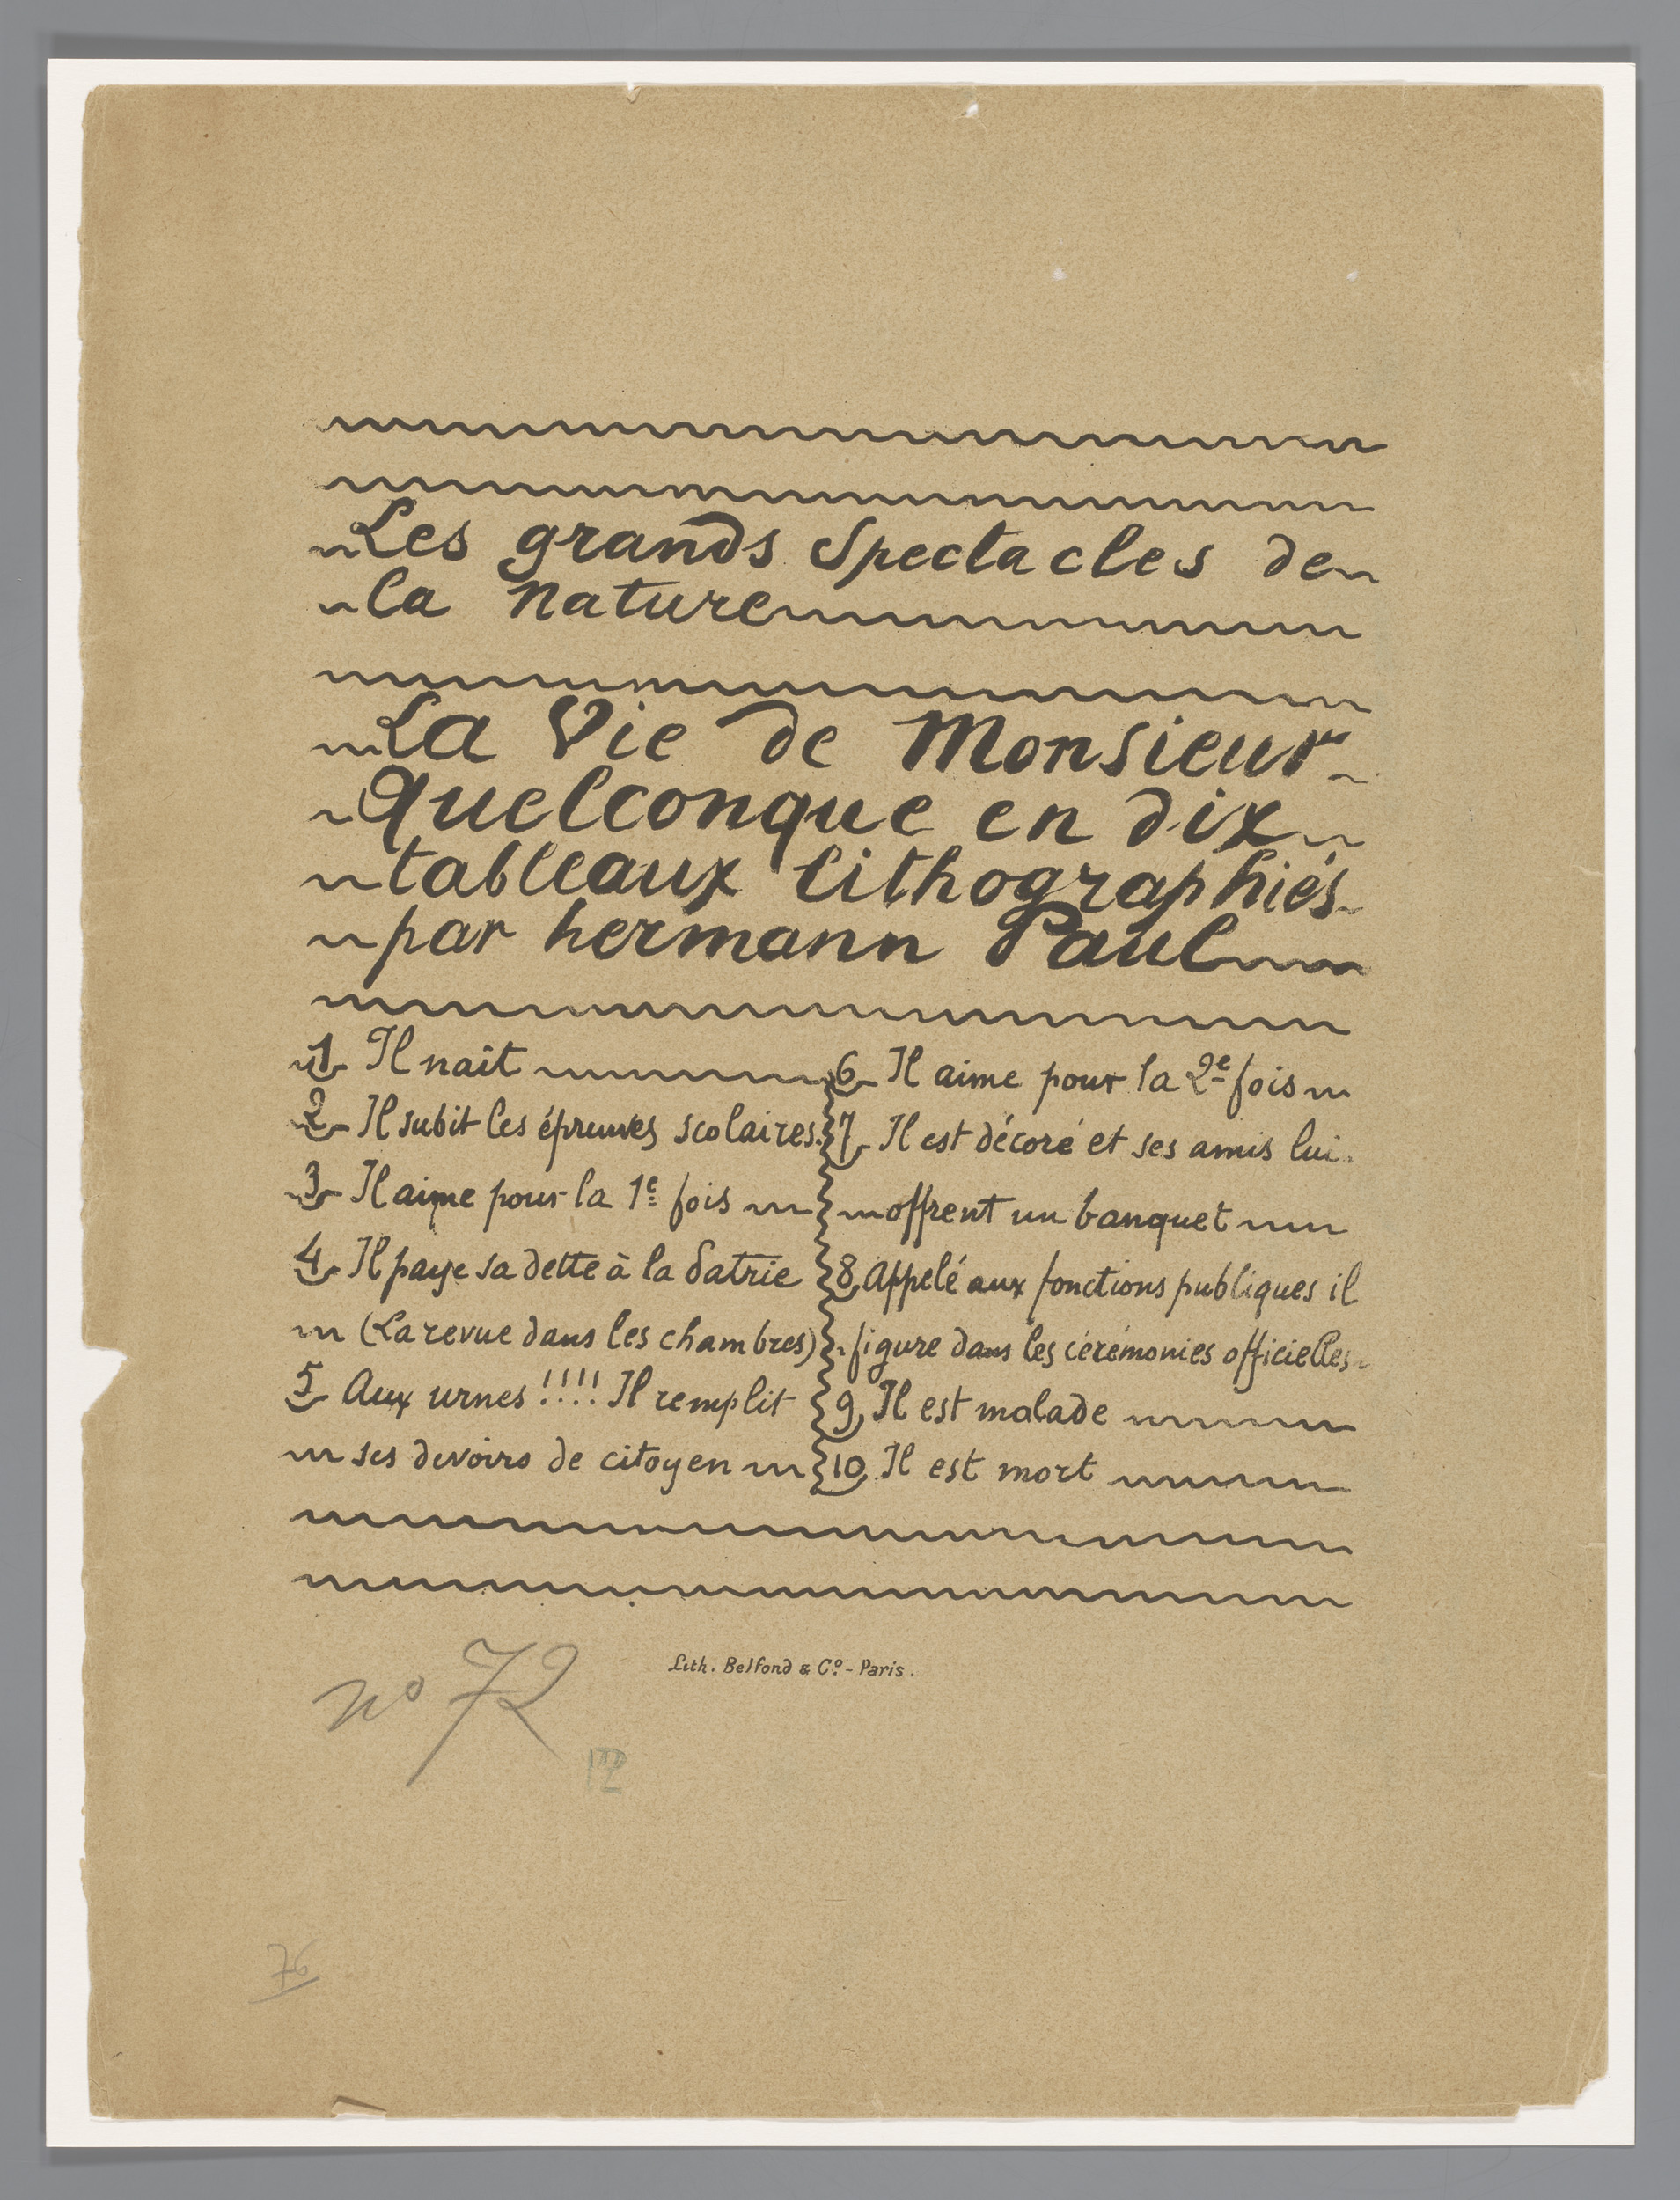 Les grands Spectacles de
la nature
La Vie de Monsieur
Quelconque en dix
tableaux lithographiés
par hermann Paul
1 Il naît
2 Il subit les épreuves scolaires.
3 Il aime pour la 1e fois
4 Il paye sa dette à la Patrie
(La revue dans les chambres)
5 Aux urnes !!!! Il remplit
ses devoirs de citoyen
6 Il aime pour la 2e fois
7 Il est décoré et ses amis lui
offrent un banquet
8 Appelé aux fonctions publiques il
figure dans les cérémonies officielles
9 Il est malade
10 Il est mort
Lith. Belfond & Co. - Paris.
no 72
76